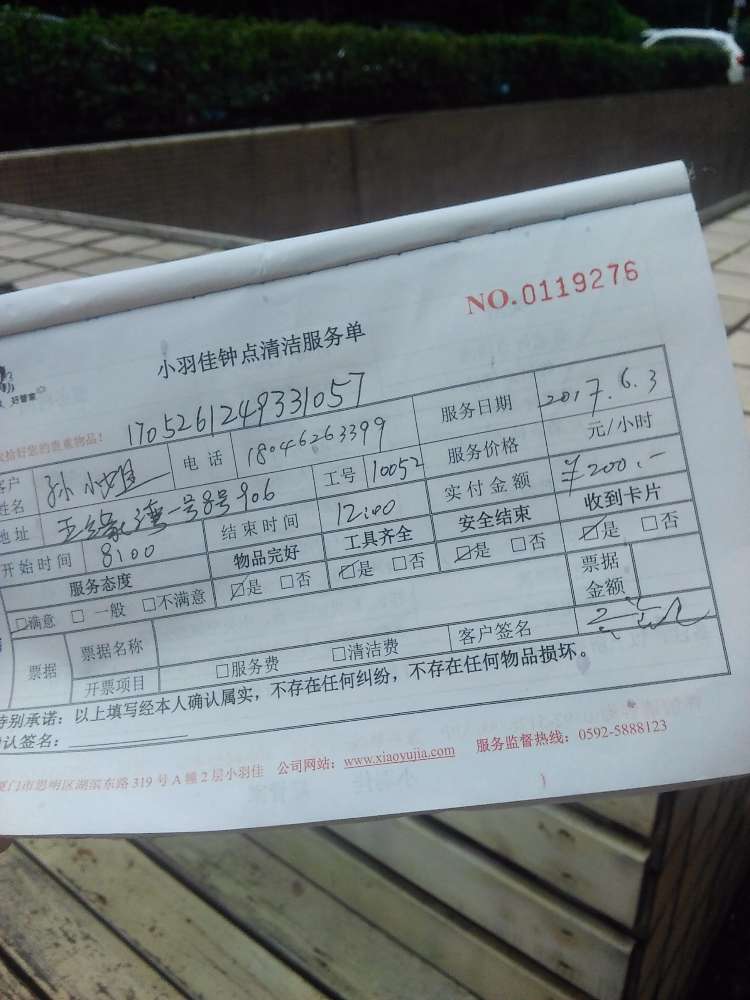 NO.0119276
小羽佳钟点清洁服务单
好管家
拾好您的贵重物品!
1705261249331057
客户姓名 孙小姐 电话 18046263399 服务日期 2017.6.3
地址 一号8号906 工号 10052 服务价格 元/小时
开始时间 8:00 结束时间 12:00 实付金额 ¥200.-
服务态度 物品完好 工具齐全 安全结束 收到卡片
□满意 □一般 □不满意 ☑是 □否 ☑是 □否 ☑是 □否 ☑是 □否
票据 票据名称 票据金额
开票项目 □服务费 □清洁费 客户签名
特别承诺：以上填写经本人确认属实，不存在任何纠纷，不存在任何物品损坏。
确认签名：
厦门市思明区湖滨东路319号A幢2层小羽佳 公司网站：www.xiaoyujia.com 服务监督热线：0592-5888123